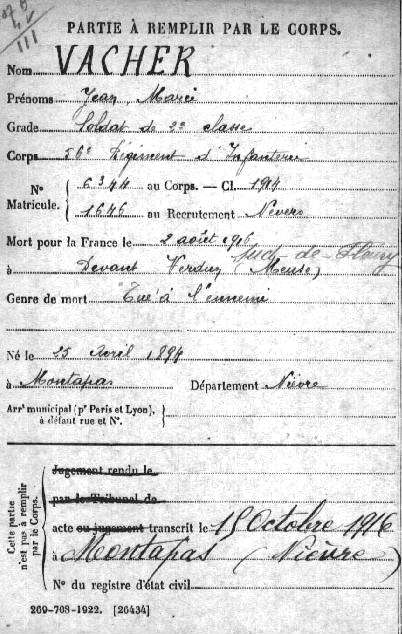 III
PARTIE À REMPLIR PAR LE CORPS.
Nom VACHER
Prénoms Jean Marie
Grade Soldat de 2e classe
Corps 56e Régiment d'Infanterie
N° Matricule. 6344 au Corps. — Cl. 1914
1646 au Recrutement Nevers
Mort pour la France le 2 août 1916
sud de Fleury
à Devant Verdun (Meuse)
Genre de mort Tué à l'ennemi
Né le 25 Avril 1894
à Montapas Département Nièvre
Arrt municipal (pr Paris et Lyon),
à défaut rue et N°.
Cette partie n'est pas à remplir par le Corps.
Jugement rendu le
par le Tribunal de
acte ou jugement transcrit le 15 Octobre 1916
à Montapas (Nièvre)
N° du registre d'état civil
269-708-1922. [26434]